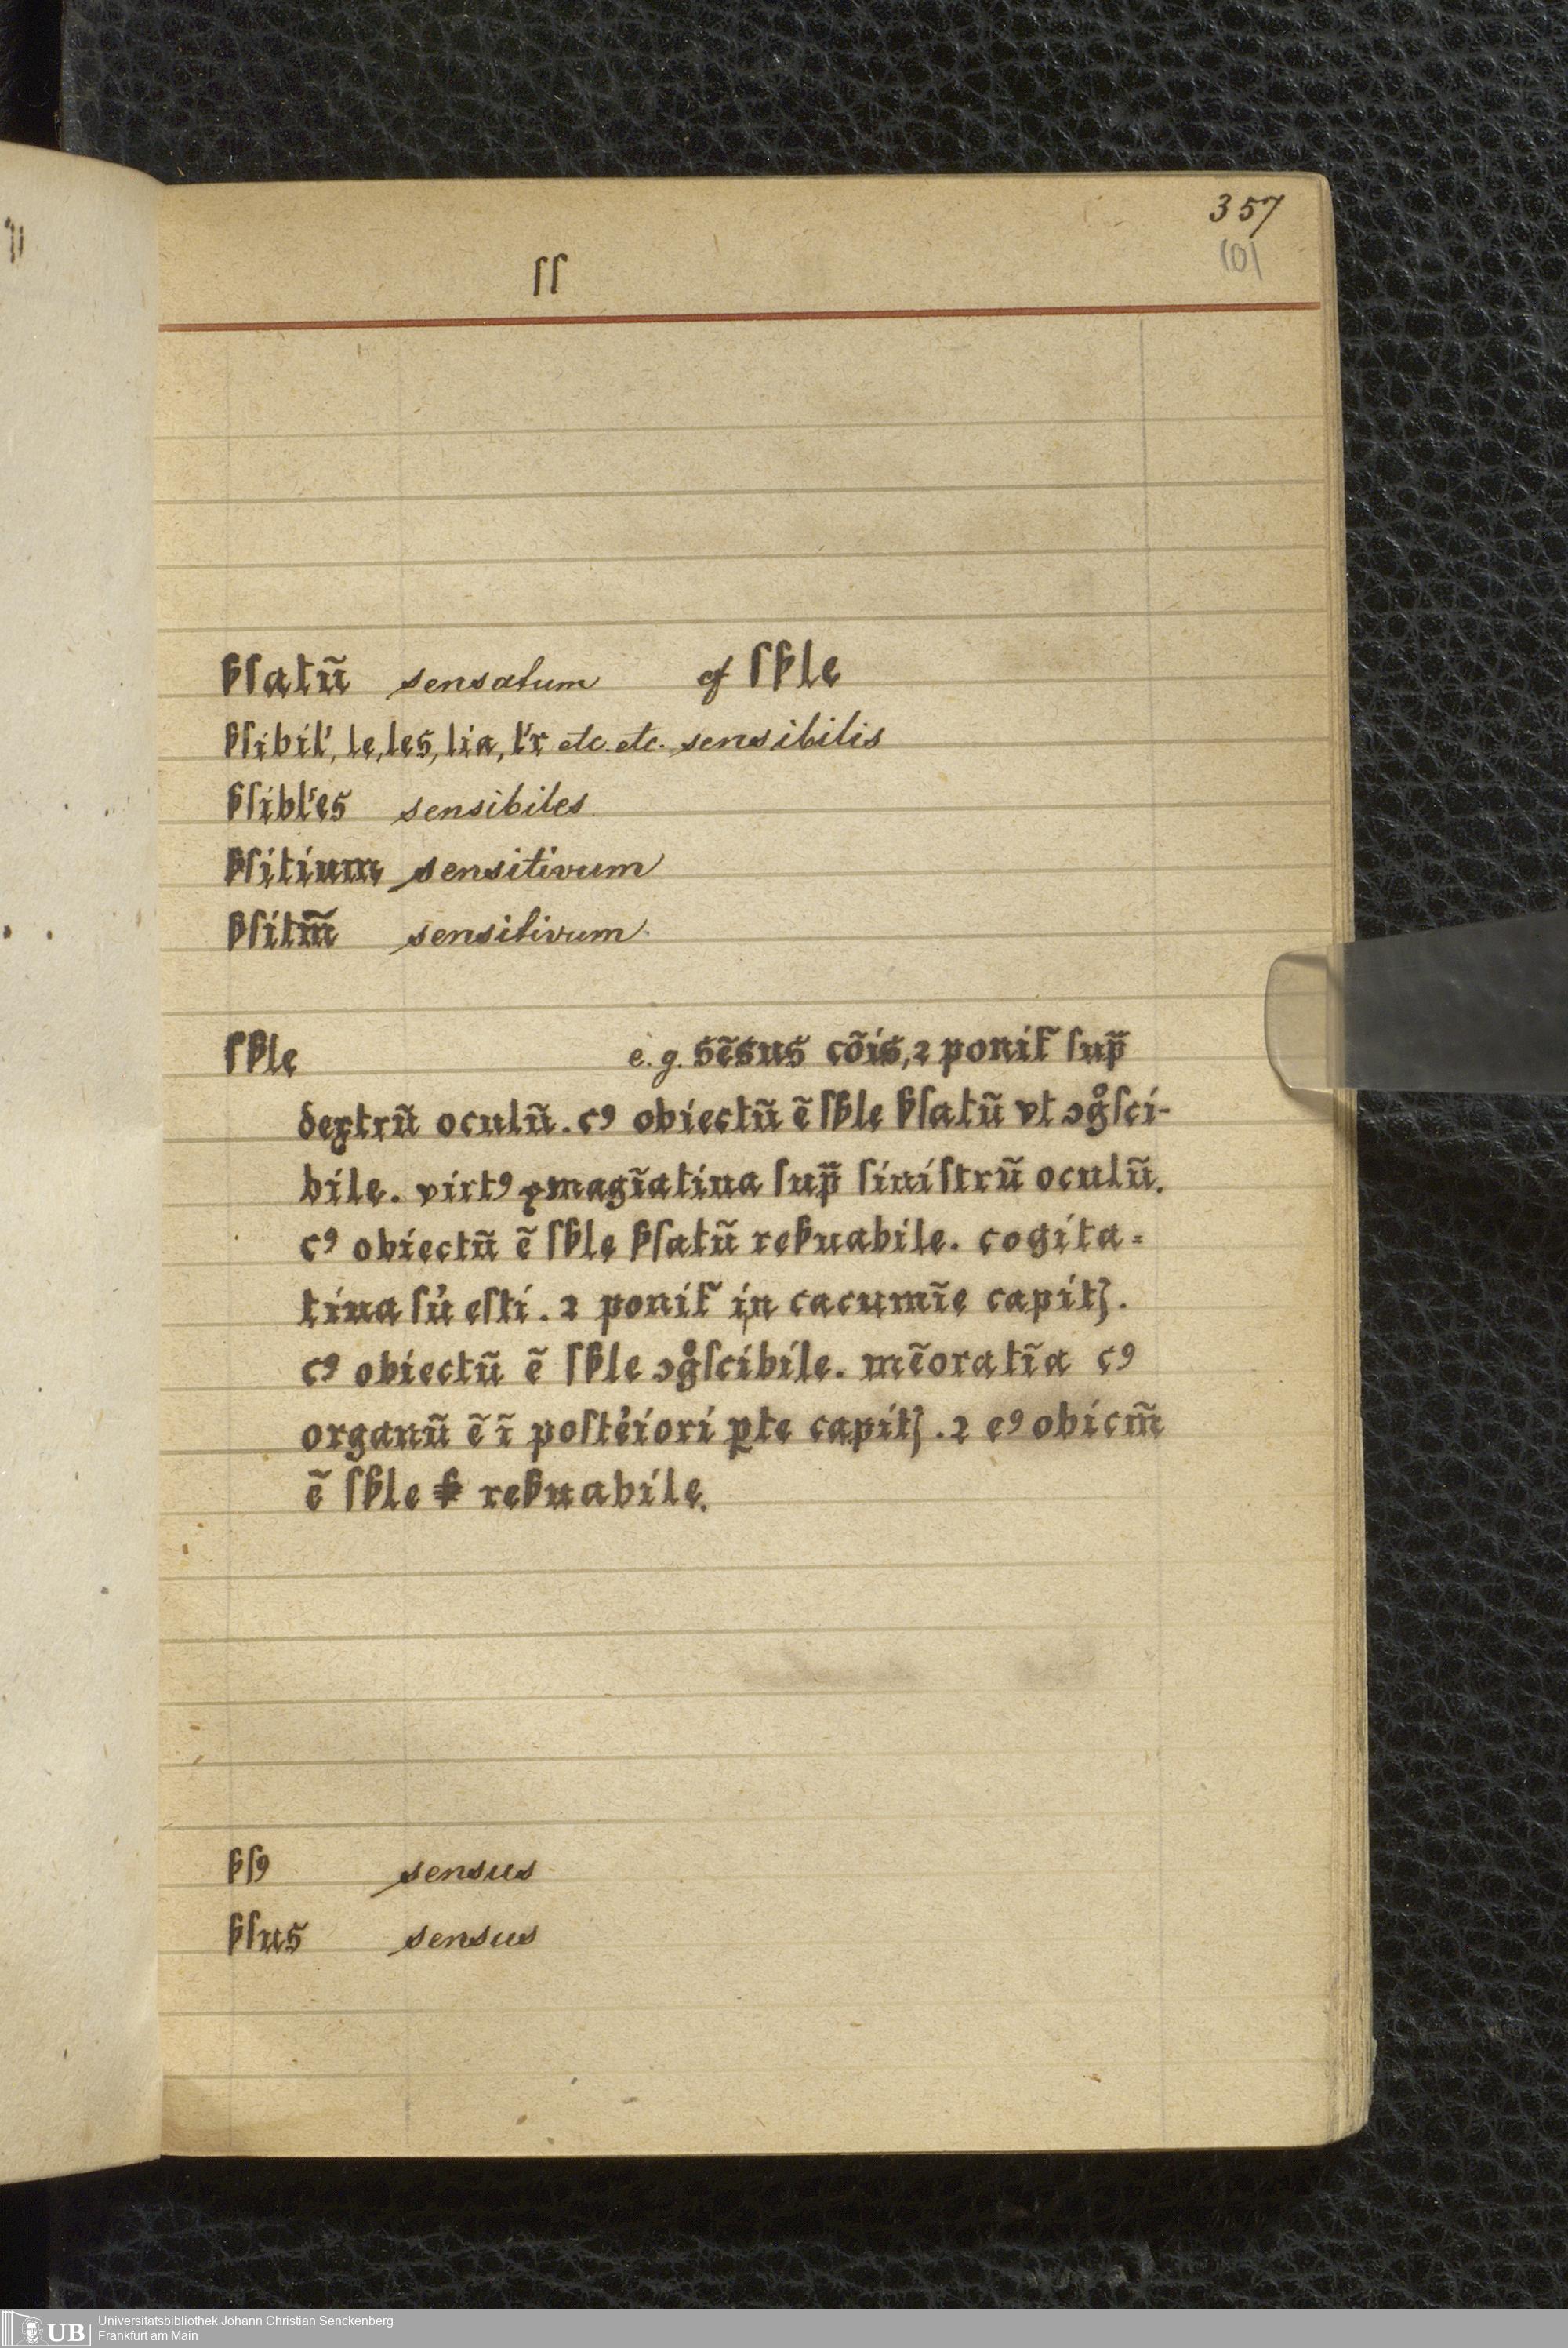 357
101
ſſ
ꝟſatũ sensatum cf ſꝟle
ꝟſibiľ, le, les, lia, ľr etc. etc. sensibilis
ꝟſibľes sensibiles
ꝟſitium sensitivum
ꝟſitm̃ sensitivum
ſꝟle e.g. sẽsus cõis, ⁊ ponit᷑ ſup̃
dextrũ oculũ. cꝰ obiectũ ẽ ſꝟle ꝟſatũ vt ↄgͦſci-
bile. virtꝰ ymagĩatiua ſup̃ ſiniſtrũ oculũ.
cꝰ obiectũ ẽ ſꝟle ꝟſatũ reꝟuabile. cogita=
tiua ſu̓ eſti. ⁊ ponit᷑ in cacumĩe capitꝭ.
cꝰ obiectũ ẽ ſꝟle ↄgͦſcibile. mẽoratĩa cꝰ
organũ ẽ ĩ poſte̓iori ꝑte capitꝭ. ⁊ eꝰ obicm̃
ẽ ſꝟle reꝟuabile.
ꝟſꝰ sensus
ꝟſus sensus
UB
Universitätsbibliothek Johann Christian Senckenberg
Frankfurt am Main